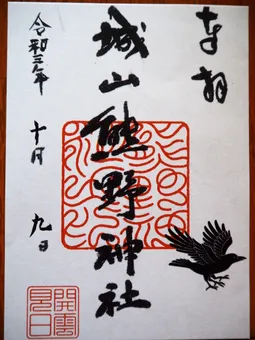 奉拝
城山熊野神社
令和三年 十月 九日